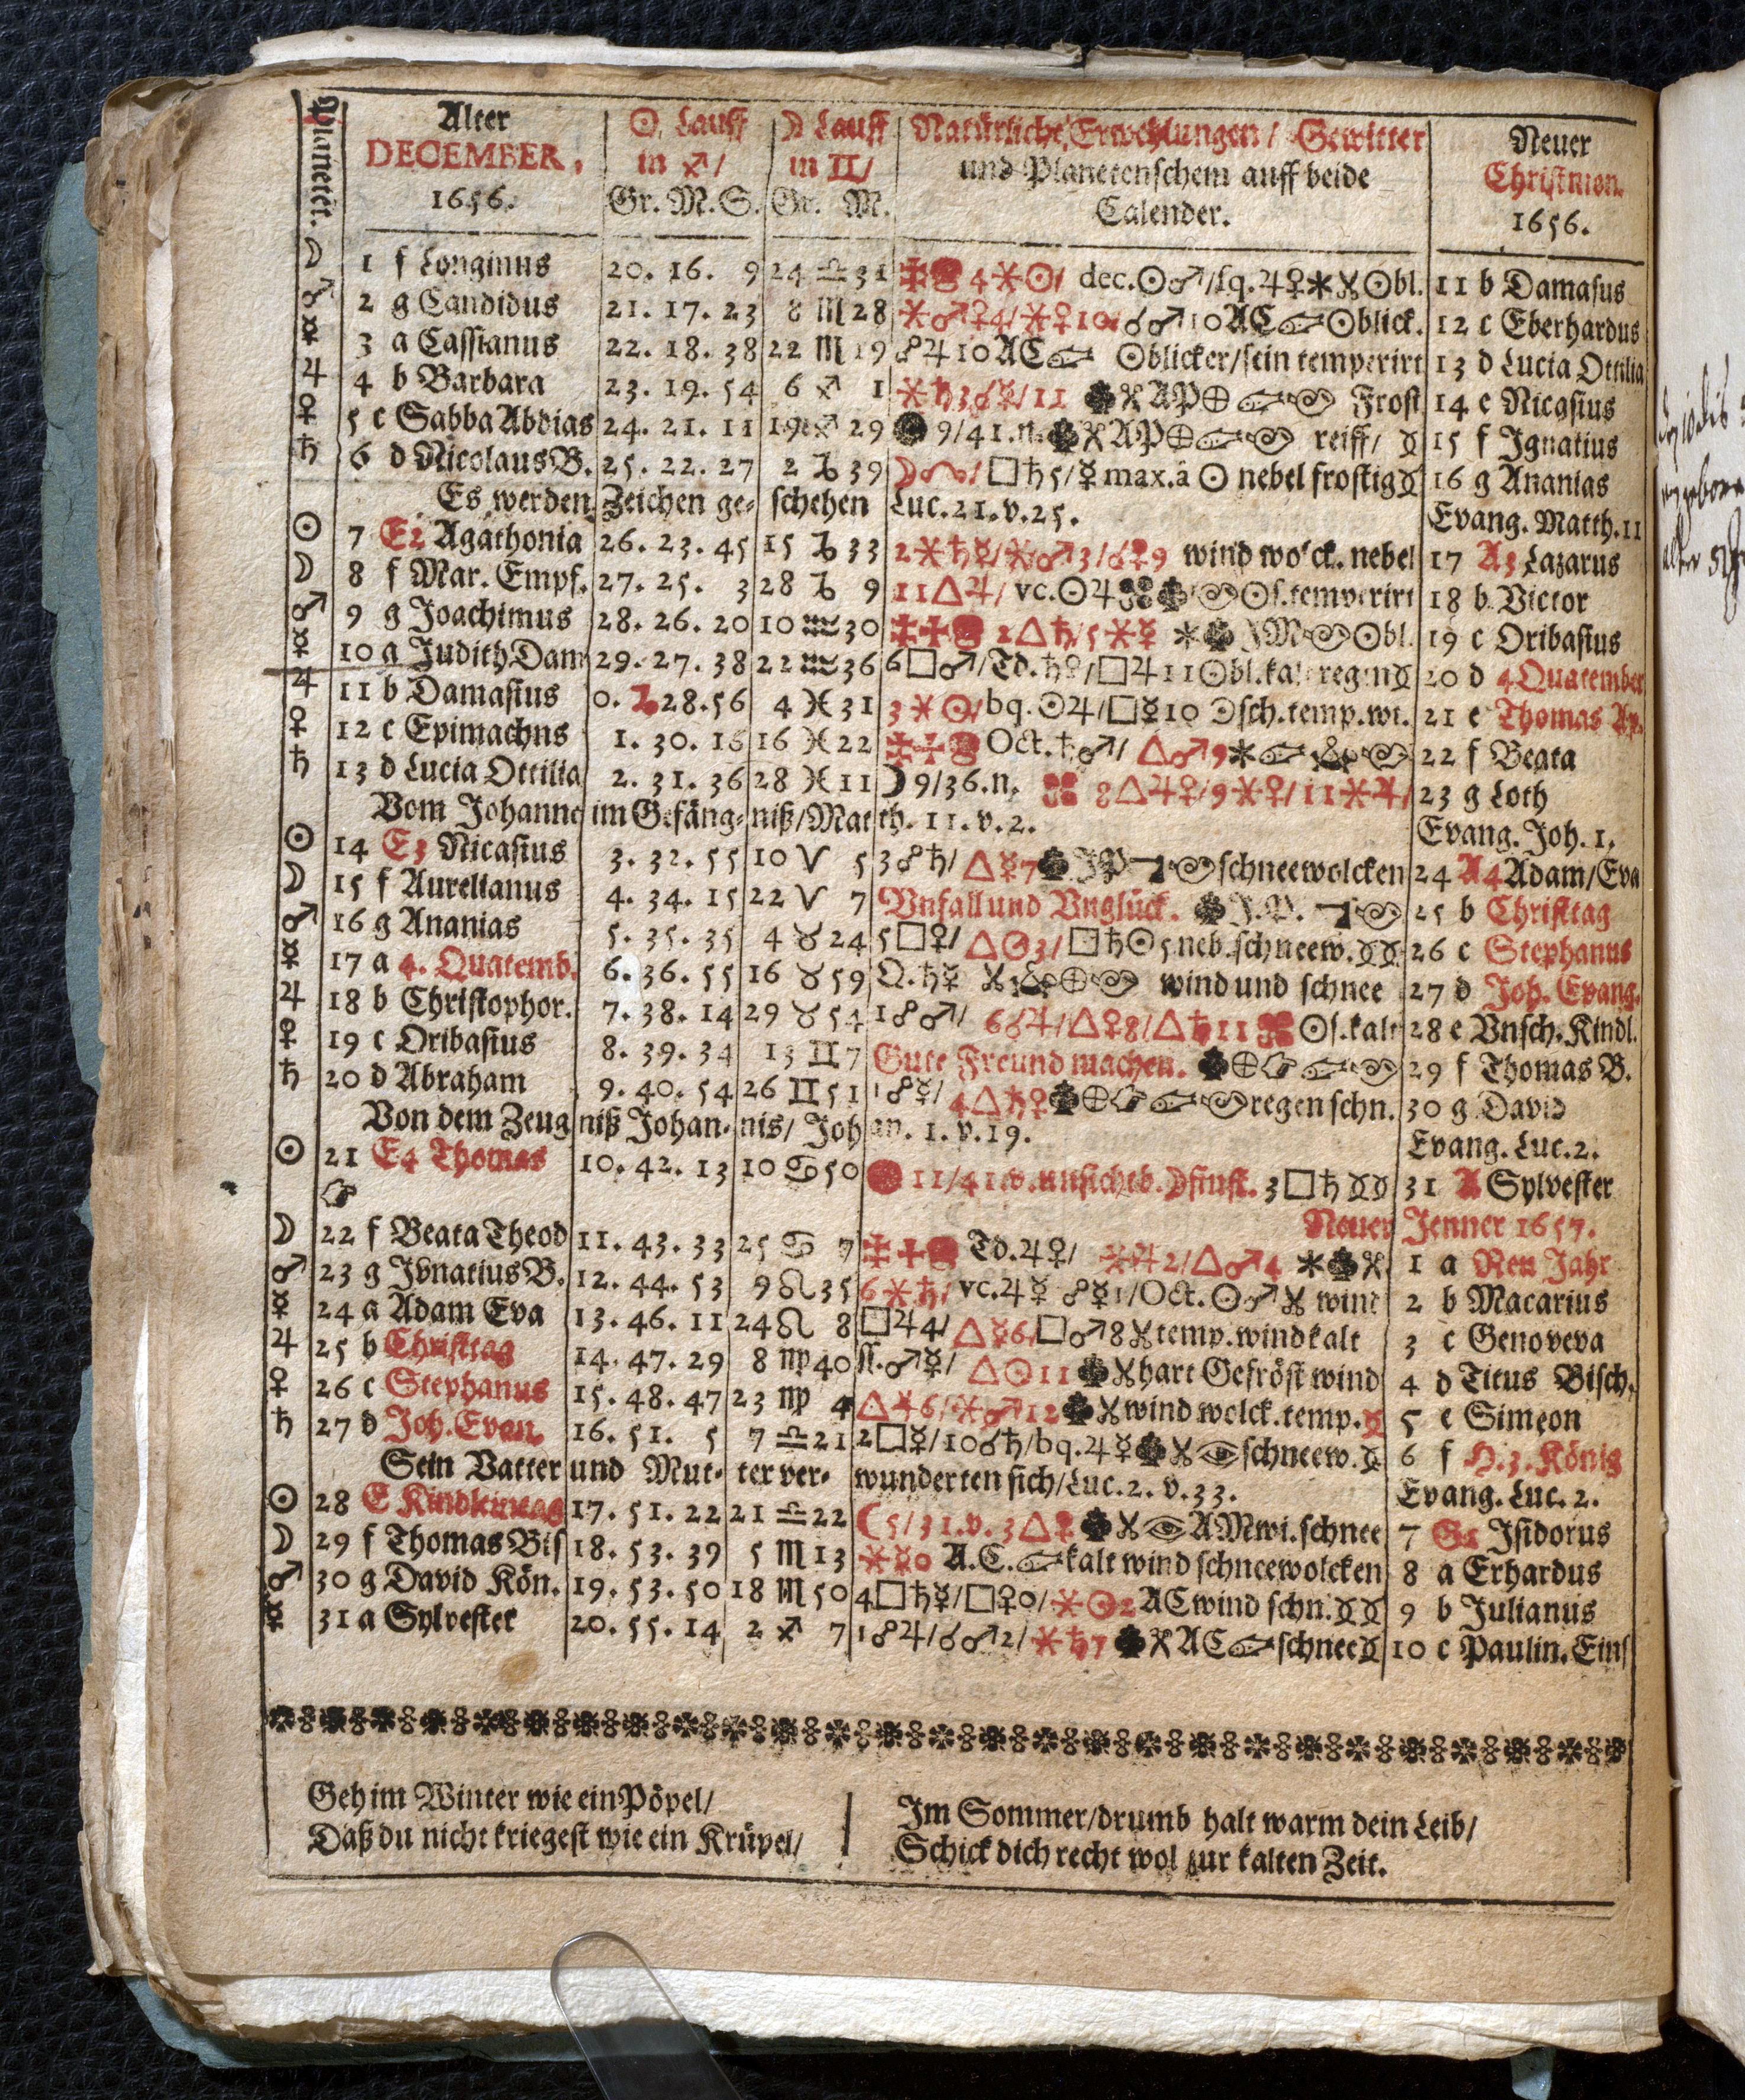 Planeten. Alter DECEMBER, 1656. ☉ Lauff in ♐/ Gr. M. S. ☽ Lauff in ♊/ Gr. M. Natürliche Erwehlungen/ Gewitter und Planetenschein auff beide Calender. Neuer Christmon. 1656.
☽ 1 f Longinus 20. 16. 9 24 ♎ 31 4 ⚹ ☉/ dec. ☉♂/ſq. ♃♀ ☉bl. 11 b Damaſus
♂ 2 g Candidus 21. 17. 23 8 ♏ 28 ☌♂10 AC ☉blick. 12 c Eberhardus
☿ 3 a Caſſianus 22. 18. 38 22 ♏ 19 ☍♃10 AC ☉blicker/fein temperirt 13 d Lucia Ottilia
♃ 4 b Barbara 23. 19. 54 6 ♐ 1 ⚹♄3☌☿/11 AP⊕ Froſt 14 e Nicaſius
♀ 5 c Sabba Abdias 24. 21. 11 19 ♐ 29 9/41.n. AP⊕ reiff/ 15 f Ignatius
♄ 6 d Nicolaus B. 25. 22. 27 2 ♑ 39 □♄5/☿max.à ☉ nebel froſtig 16 g Ananias
Es werden Zeichen ge⸗ ſchehen Luc. 21. v. 25. Evang. Matth. 11
☉ 7 E2 Agathonia 26. 23. 45 15 ♑ 33 2⚹♄☿/⚹♂3/☌♀9 wind wolck. nebel 17 A3 Lazarus
☽ 8 f Mar. Empf. 27. 25. 3 28 ♑ 9 11△♃/ vc.☉♃ ☉ſ.temperirt 18 b Victor
♂ 9 g Joachimus 28. 26. 20 10 ♒ 30 2△♄/5⚹☿ JM ☉bl. 19 c Oribaſius
☿ 10 a Judith Dam 29. 27. 38 22 ♒ 36 6□♂/Td.♄♀/□♃11☉bl.kalt regen 20 d 4 Quatember
♃ 11 b Damaſius 0.♑28.56 4 ♓ 31 3⚹☉/bq.☉♃/□☿10 ☉ſch.temp.wi. 21 e Thomas Ap.
♀ 12 c Epimachus 1. 30. 16 16 ♓ 22 Oct.♄♂/ △♂9 22 f Beata
♄ 13 d Lucia Ottilia 2. 31. 36 28 ♓ 11 ☽9/36.n. 8△♃♀/9⚹♀/11⚹♃/ 23 g Loth
Vom Johanne im Gefäng⸗ niß/Matth. 11. v. 2. Evang. Joh. 1.
☉ 14 E3 Nicaſius 3. 32. 55 10 ♈ 5 3☍♄/ △☿7 JP ſchneewolcken 24 A4 Adam/Eva
☽ 15 f Aurelianus 4. 34. 15 22 ♈ 7 Unfall und Unglück. J.P. 25 b Chriſttag
♂ 16 g Ananias 5. 35. 35 4 ♉ 24 5□♀/ △☉3/□♄☉5 neb.ſchneew. 26 c Stephanus
☿ 17 a 4. Quatemb. 6. 36. 55 16 ♉ 59 Q.♄☿ ⊕ wind und ſchnee 27 d Joh. Evang.
♃ 18 b Chriſtophor. 7. 38. 14 29 ♉ 54 1☍♂/ 6☌♃/△♀8/△♄11 ☉ſ.kalt 28 e Unſch. Kindl.
♀ 19 c Oribaſius 8. 39. 34 13 ♊ 7 Gute Freund machen. ⊕ 29 f Thomas B.
♄ 20 d Abraham 9. 40. 54 26 ♊ 51 1☍☿/ 4△♄♀ ⊕ regen ſchn. 30 g David
Von dem Zeug niß Johan⸗ nis/ Johan. 1. v. 19. Evang. Luc. 2.
☉ 21 E4 Thomas 10. 42. 13 10 ♋ 50 11/41.v. unſichtb. ☽finſt. 3□♄ 31 A Sylveſter
☞ Neuer Jenner 1657.
☽ 22 f Beata Theod 11. 43. 33 25 ♋ 7 Td.♃♀/ ⚹♃2/△♂4 1 a Neu Jahr
♂ 23 g Ignatius B. 12. 44. 53 9 ♌ 35 6⚹♄/ vc.♃☿ ☍☿1/Oct.☉♂ wind 2 b Macarius
☿ 24 a Adam Eva 13. 46. 11 24 ♌ 8 □♃4/ △☿6/□♂8 temp. wind kalt 3 c Genoveva
♃ 25 b Chriſttag 14. 47. 29 8 ♍ 40 ſſ.♂☿/ △☉11 hart Gefröſt wind 4 d Titus Biſch.
♀ 26 c Stephanus 15. 48. 47 23 ♍ 4 △♃6/⚹♂12 wind wolck. temp. 5 e Simeon
♄ 27 d Joh. Evan. 16. 51. 5 7 ♎ 21 2□☿/10☌♄/bq.♃☿ ſchneew. 6 f H. 3. König
Sein Vatter und Mut⸗ ter ver⸗ wunderten ſich/Luc. 2. v. 33. Evang. Luc. 2.
☉ 28 E Kindleintag 17. 51. 22 21 ♎ 22 ☾5/31.v. 3△♀ AM wi. ſchnee 7 G1 Iſidorus
☽ 29 f Thomas Biſ 18. 53. 39 5 ♏ 13 ⚹☿0 A.C. kalt wind ſchneewolcken 8 a Erhardus
♂ 30 g David Kön. 19. 53. 50 18 ♏ 50 4□♄☿/□♀0/⚹☉2 AC wind ſchn. 9 b Julianus
☿ 31 a Sylveſter 20. 55. 14 2 ♐ 7 1☍♃/☌♂2/⚹♄7 AC ſchnee 10 c Paulin. Einſ
Geh im Winter wie ein Pöpel/
Daß du nicht kriegeſt wie ein Krüpel/
Im Sommer/drumb halt warm dein Leib/
Schick dich recht wol zur kalten Zeit.